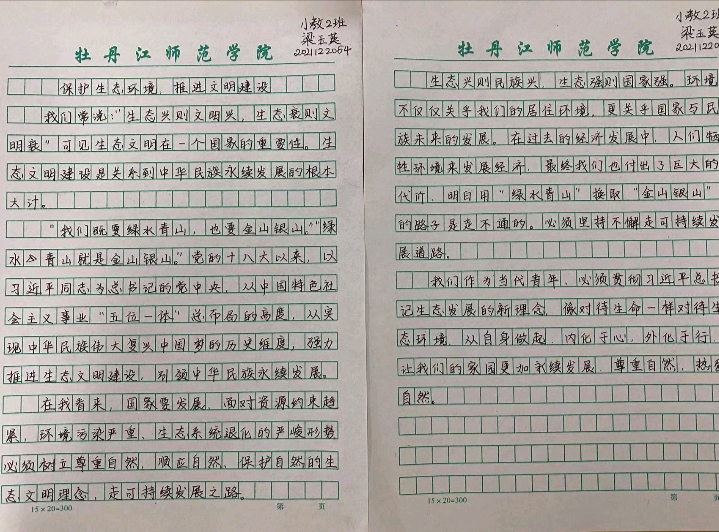 小教2班
梁玉英
2021122054
牡丹江师范学院
保护生态环境,推进文明建设
我们常说:"生态兴则文明兴,生态衰则文
明衰"可见生态文明在一个国家的重要性。生
态文明建设是关系到中华民族永续发展的根本
大计。
"我们既要绿水青山,也要金山银山。""绿
水青山就是金山银山。"党的十八大以来,以
习近平同志为总书记的党中央,从中国特色社
会主义事业"五位一体"总布局的高度,从实
现中华民族伟大复兴中国梦的历史维度,强力
推进生态文明建设,引领中华民族永续发展。
在我看来,国家要发展,面对资源约束趋
紧,环境污染严重、生态系统退化的严峻形势
必须树立尊重自然,顺应自然、保护自然的生
态文明理念,走可持续发展之路。
15×20=300 第 页
小教2班
梁玉英
20211220
牡丹江师范学院
生态兴则民族兴,生态强则国家强。环境
不仅仅关乎我们的居住环境,更关乎国家与民
族未来的发展。在过去的经济发展中,人们牺
牲环境来发展经济,最终我们也付出了巨大的
代价,明白用"绿水青山"换取"金山银山"
的路子是走不通的。必须坚持不懈走可持续发
展道路。
我们作为当代青年,必须贯彻习近平总书
记生态发展的新理念,像对待生命一样对待生
态环境,从自身做起,内化于心,外化于行,
让我们的家园更加永续发展,尊重自然,热爱
自然。
15×20=300 第